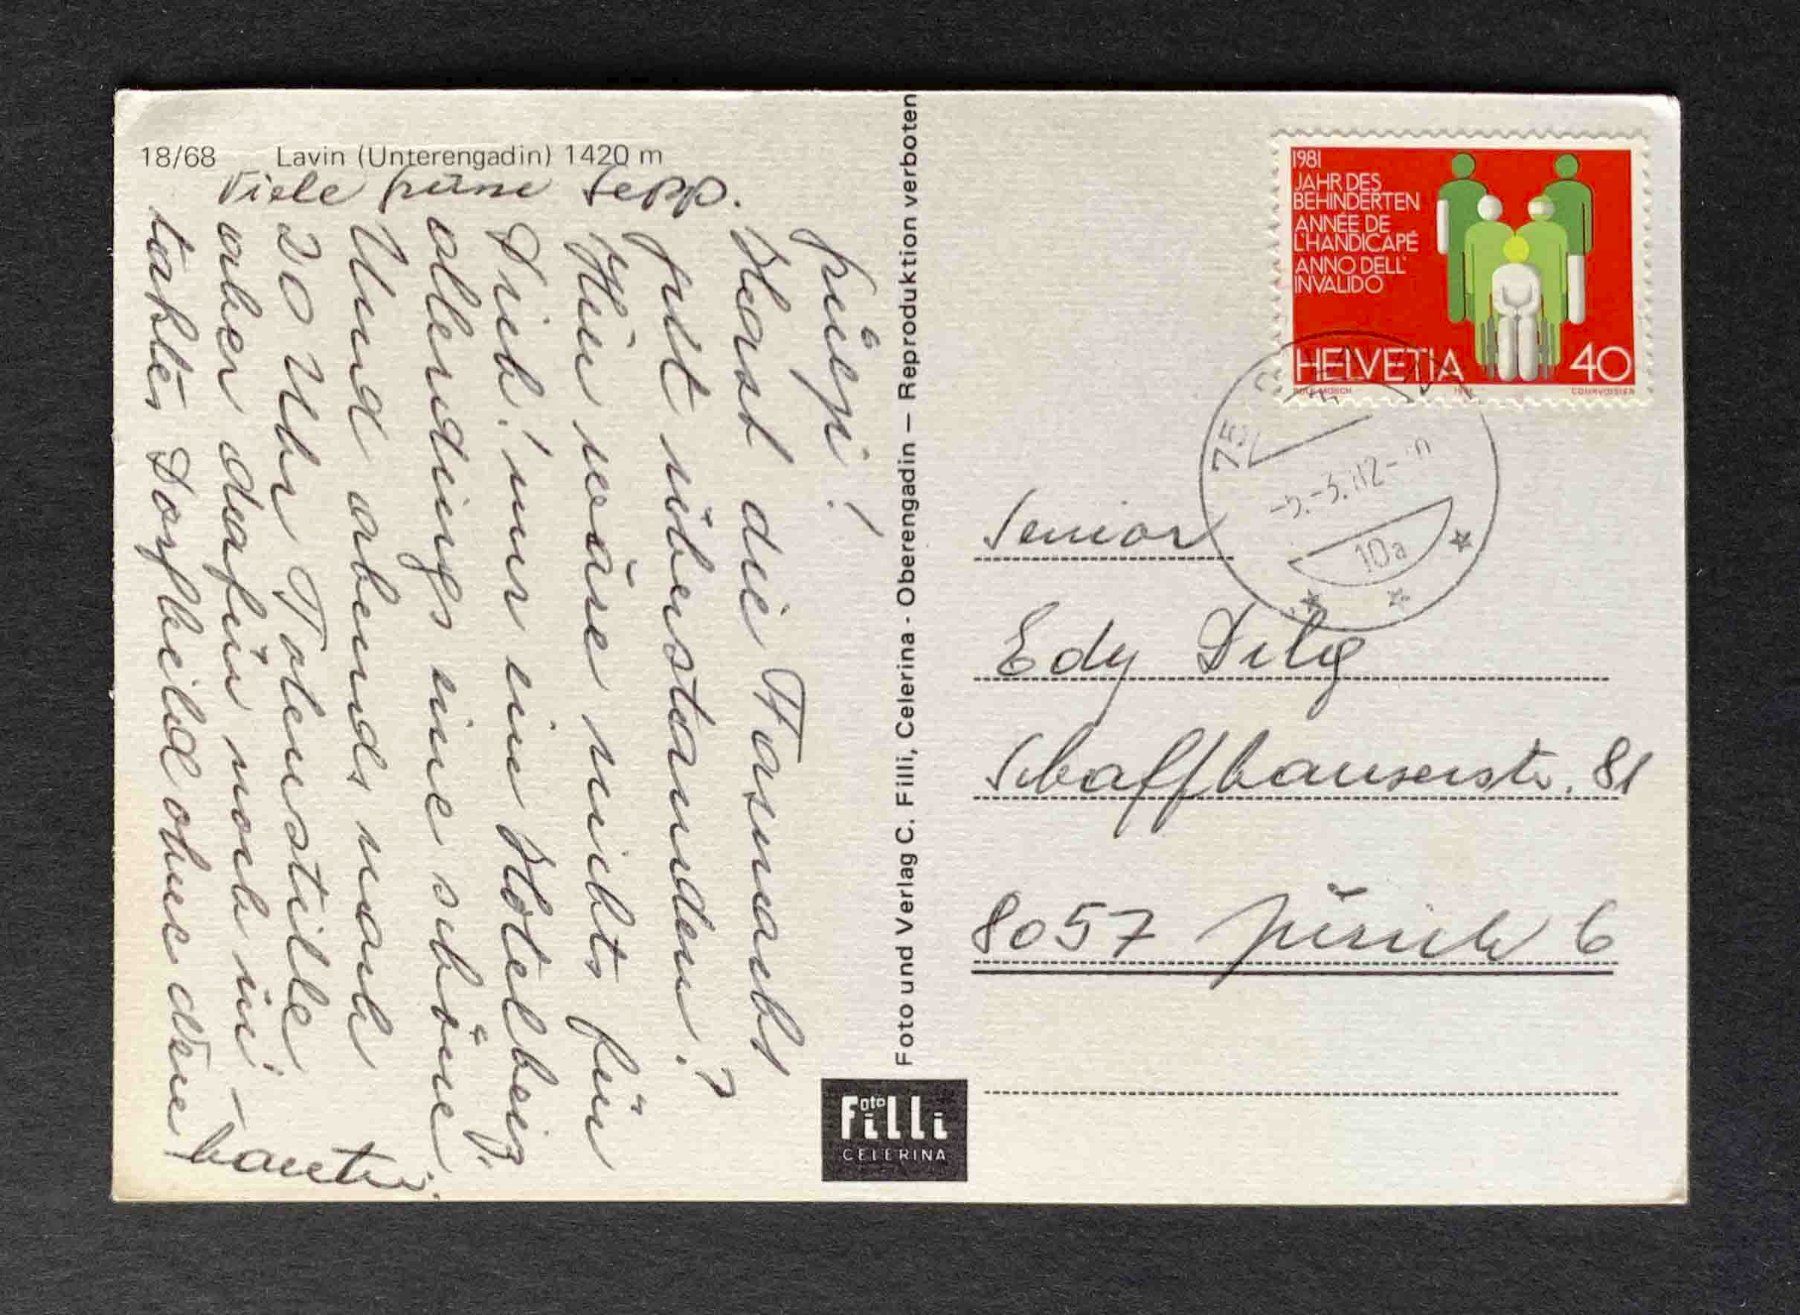 18/68 Lavin (Unterengadin) 1420 m
Viele Grüsse Sepp.
Grüezi!
Hast die Fasnacht
gut überstanden?
Hier wäre nichts für
Dich! nur ein Hotelbeiz.
allerdings eine schöne.
Und abends nach
20 Uhr Totenstille
aber dafür noch in-
taktes Dorfbild ohne
bauten.
Foto und Verlag C. Filli, Celerina - Oberengadin – Reproduktion verboten
Foto
Filli
CELERINA
1981
JAHR DES
BEHINDERTEN
ANNÉE DE
L'HANDICAPÉ
ANNO DELL'
INVALIDO
HELVETIA 40
COURVOISIER
10a
Senior
Edy Dilg
Schaffhauserstr. 81
8057 Zürich 6